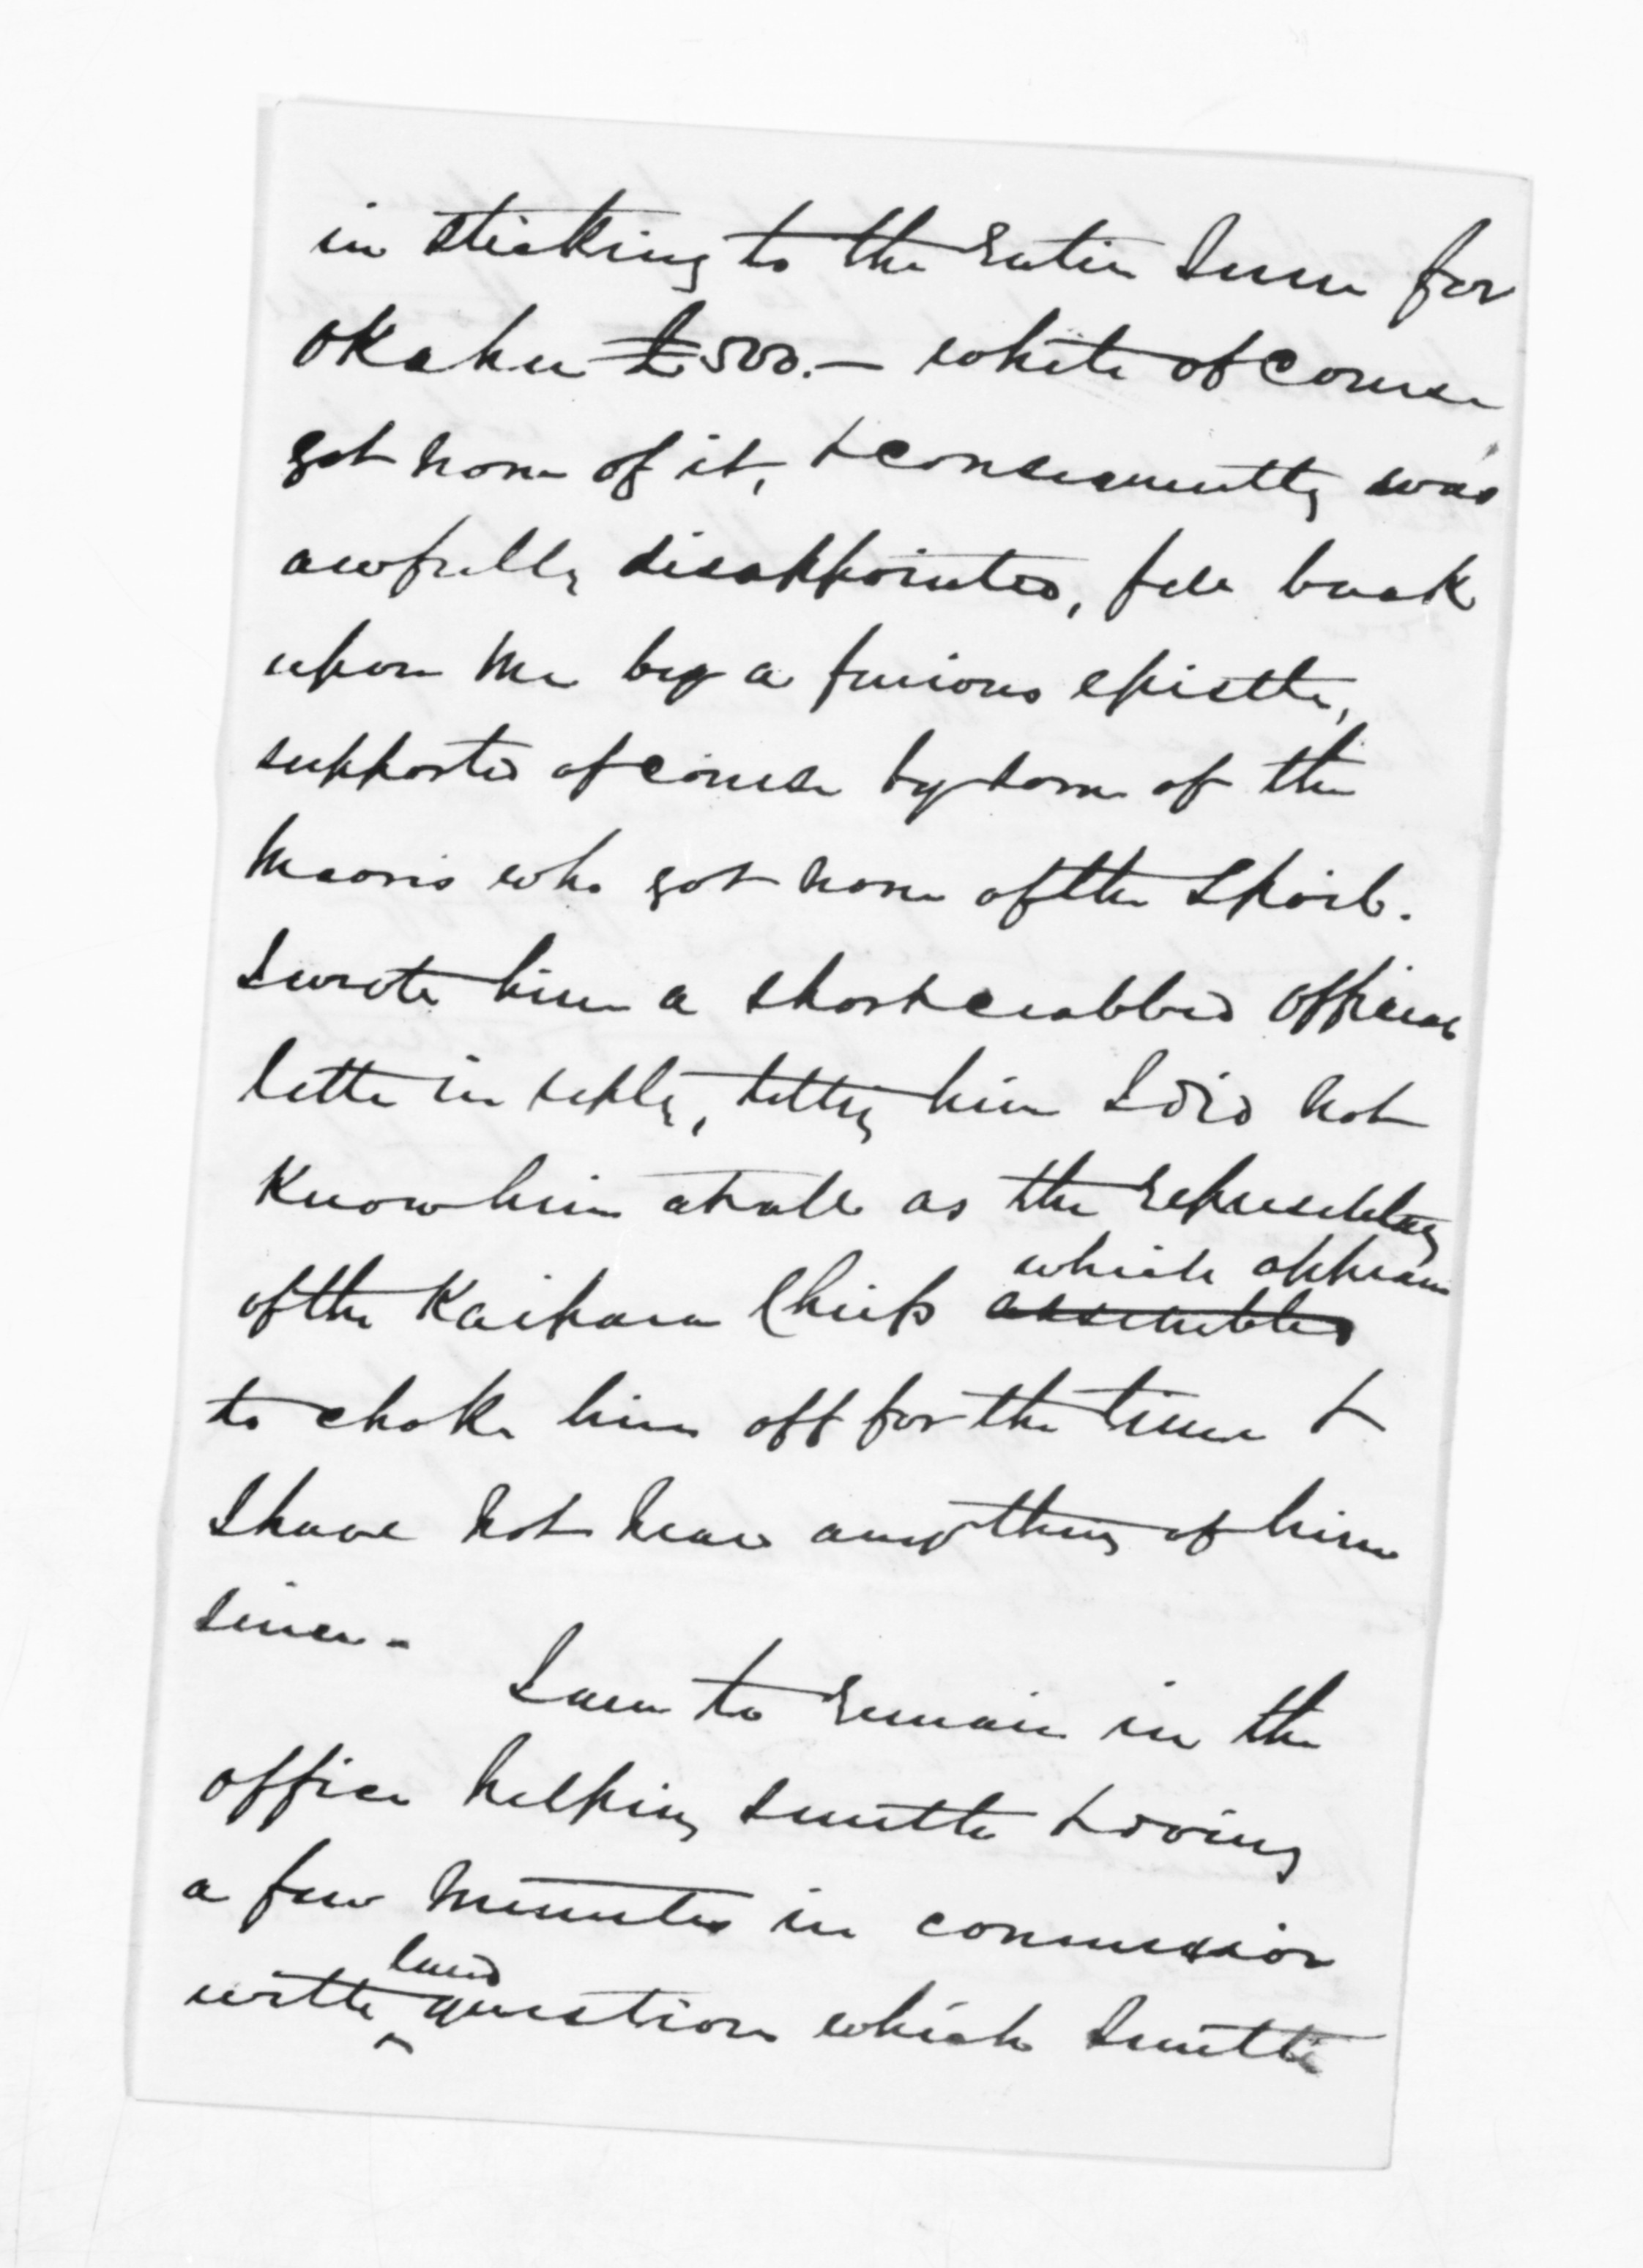 in sticking to the entire sum for
Okahu £500.— White of course
got none of it, & consequently was
awfully disappointed, fell back
upon me by a furious epistle,
supported of course by some of the
Maoris who got none of the spoil.
I wrote him a short crabbed official
letter in reply, telling him I did not
Know him at all as the representing
which appears
of the Kaipara Chiefs assembled
to choke him off for the time &
I have not hear anything of him
since.-
I am to remain in the
office helping Smith & doing
a few minutes in connexion
land
with ^ question which Smith